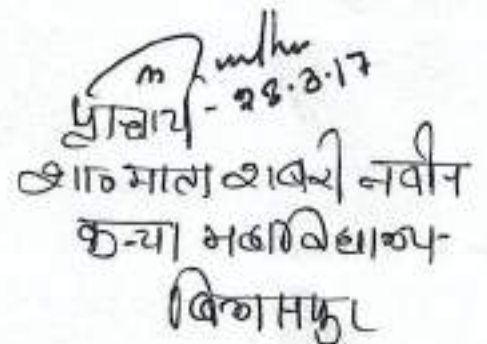 प्राचार्य - 28.3.17
शा० माता शबरी नवीन
कन्या महाविद्यालय-
बिलासपुर